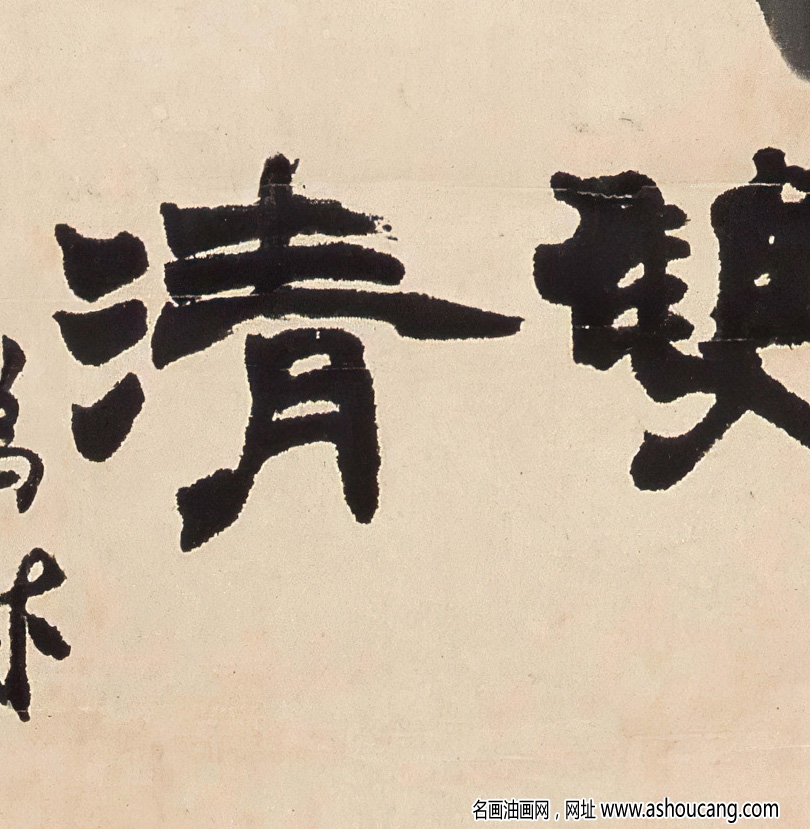 雙清
為
名画油画网，网址 www.ashoucang.com